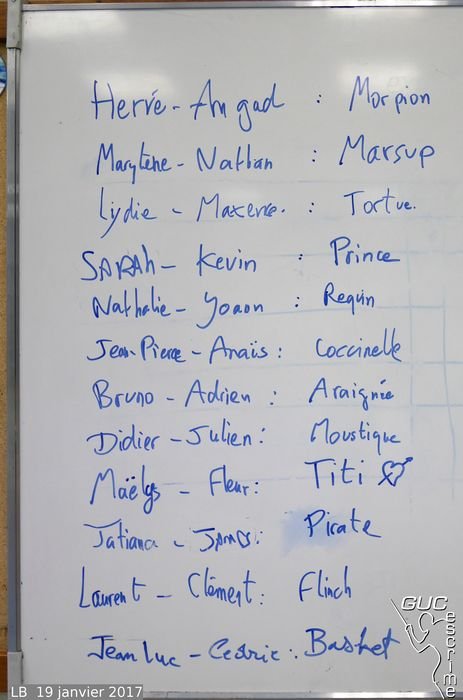 Hervé - Angad : Morpion
Marylène - Nathan : Marsup
Lydie - Maxence. : Tortue.
SARAh - Kevin : Prince
Nathalie - Yoann : Requin
Jean-Pierre - Anaïs : Coccinelle
Bruno - Adrien : Araignée
Didier - Julien : Moustique
Maëlys - Fleur : Titi
Tatiana - James : Pirate
Laurent - Clément : Flinch
Jean Luc - Cédric : Basket
GUC escrime
LB 19 janvier 2017